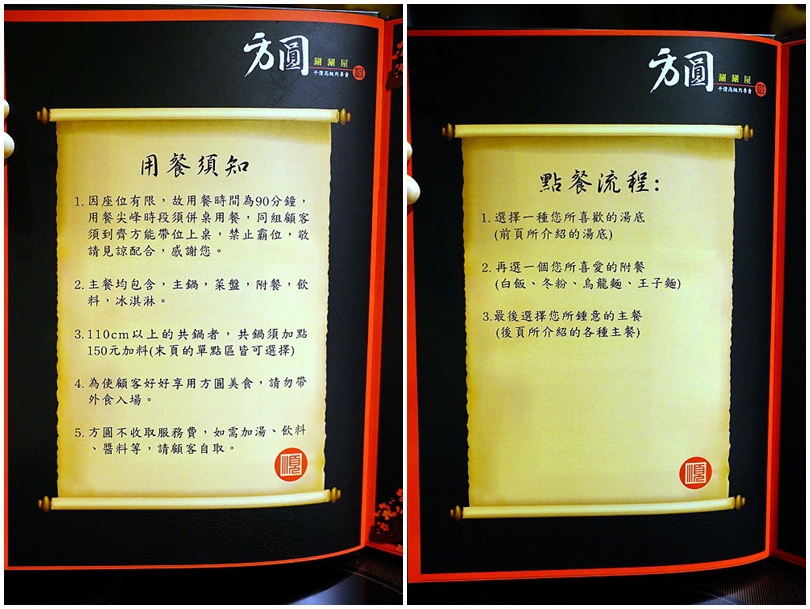 方圓
涮涮屋
平價高級肉專賣
用餐須知
1.因座位有限，故用餐時間為90分鐘，
用餐尖峰時段須併桌用餐，同組顧客
須到齊方能帶位上桌，禁止霸位，敬
請見諒配合，感謝您。
2.主餐均包含，主鍋，菜盤，附餐，飲
料，冰淇淋。
3.110cm以上的共鍋者，共鍋須加點
150元加料(末頁的單點區皆可選擇)
4.為使顧客好好享用方圓美食，請勿帶
外食入場。
5.方圓不收取服務費，如需加湯、飲料
、醬料等，請顧客自取。
方圓
涮涮屋
平價高級肉專賣
點餐流程:
1.選擇一種您所喜歡的湯底
(前頁所介紹的湯底)
2.再選一個您所喜愛的附餐
(白飯、冬粉、烏龍麵、王子麵)
3.最後選擇您所鍾意的主餐
(後頁所介紹的各種主餐)